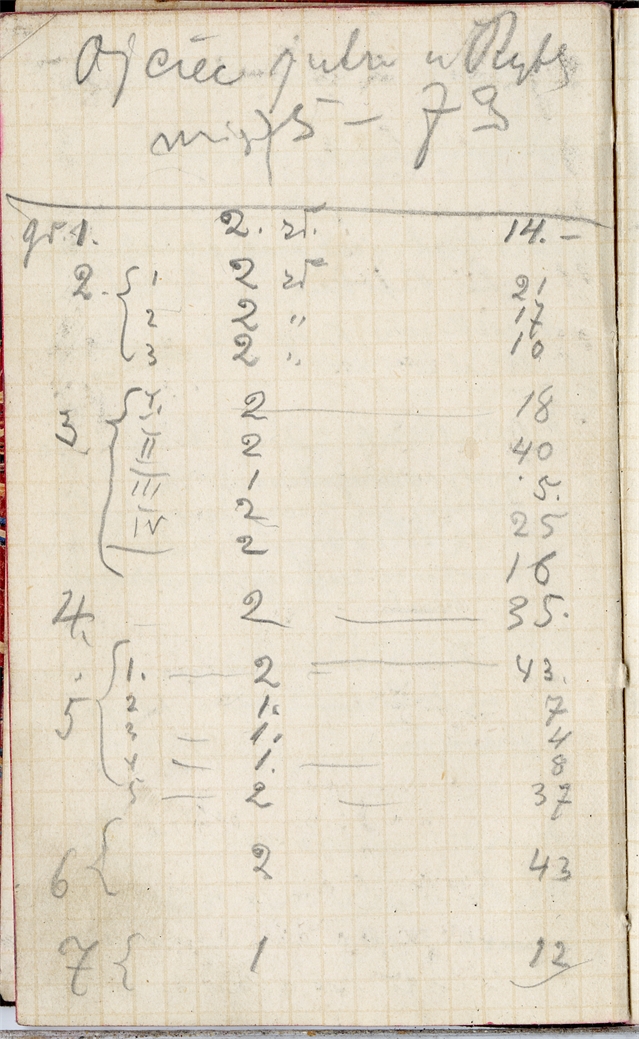 Ojciec jutro u Ryb
5 — 7
gr. 1. 2. zł. 14. —
2. { 1 2 zł 21
2 2 " 17
3 2 " 10
{ 2 — 18
II 2 40
III 1 5.
IV 2 25
2 16
4. 2 — 35.
5 { 1. — 2 — 43.
2 1. 7
3 — 1. 4
4 — 1. — 8
5 — 2 — 37
6 { 2 43
7 { 1 12